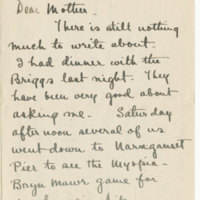 Dear Mother -
There is still nothing
much to write about.
I had dinner with the
Briggs last night. They
have been very good about
asking me. Saturday
after noon several of us
went down to Narraganset
Pier to see the Myopia -
Bryn Mawr game for